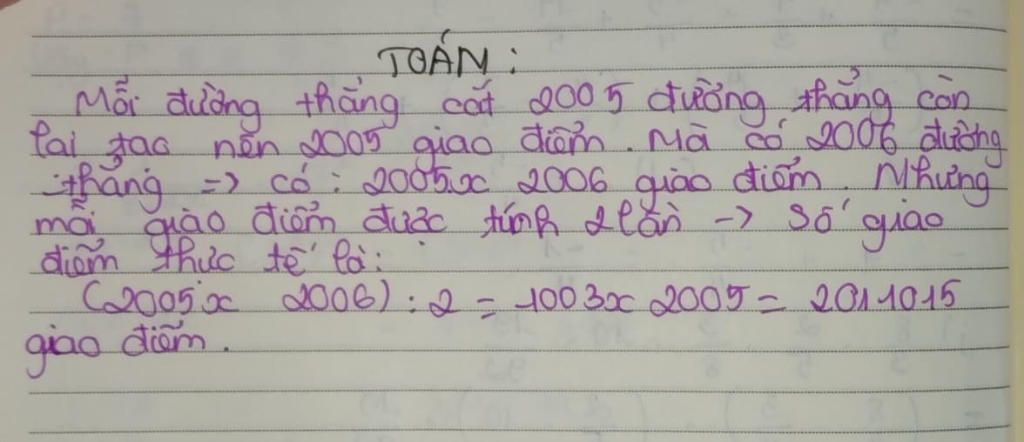 TOÁN:
Mỗi đường thẳng cắt 2005 đường thẳng còn
lại tạo nên 2005 giao điểm. Mà có 2006 đường
thẳng => có: 2005x 2006 giao điểm. Nhưng
mỗi giao điểm được tính 2 lần -> Số giao
điểm thực tế là:
(2005 x 2006) : 2 = 1003x 2005 = 2011015
giao điểm.